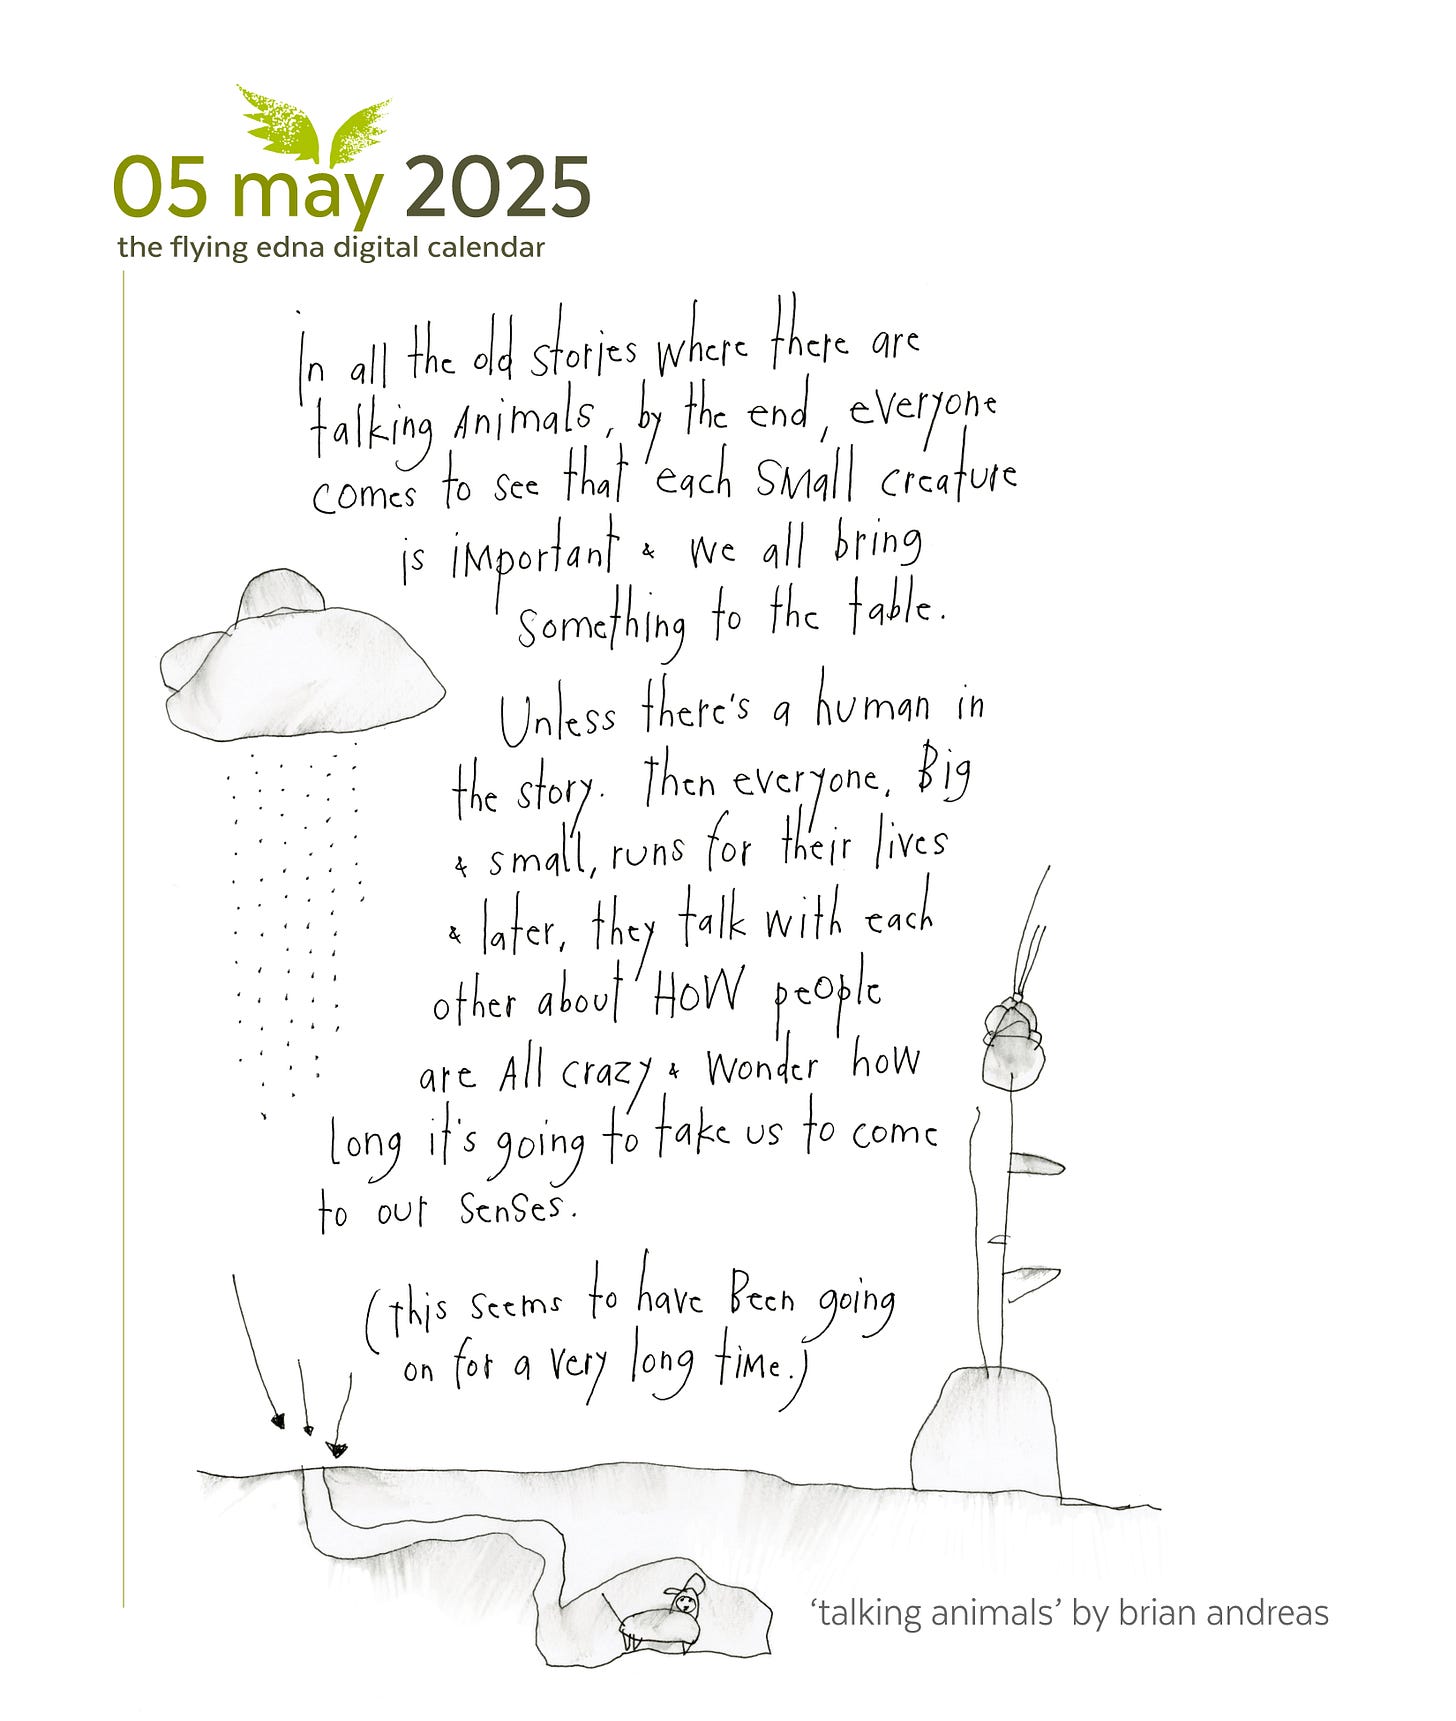 05 may 2025
the flying edna digital calendar
In all the old stories where there are
talking Animals, by the end, everyone
comes to see that each SMall creature
is iMportant & we all bring
something to the table.
Unless there's a human in
the story. Then everyone, Big
& small, runs for their lives
& later, they talk with each
other about HOW people
are All crazy & Wonder how
long it's going to take us to come
to our senses.
(this seems to have Been going
on for a very long time.)
'talking animals' by brian andreas